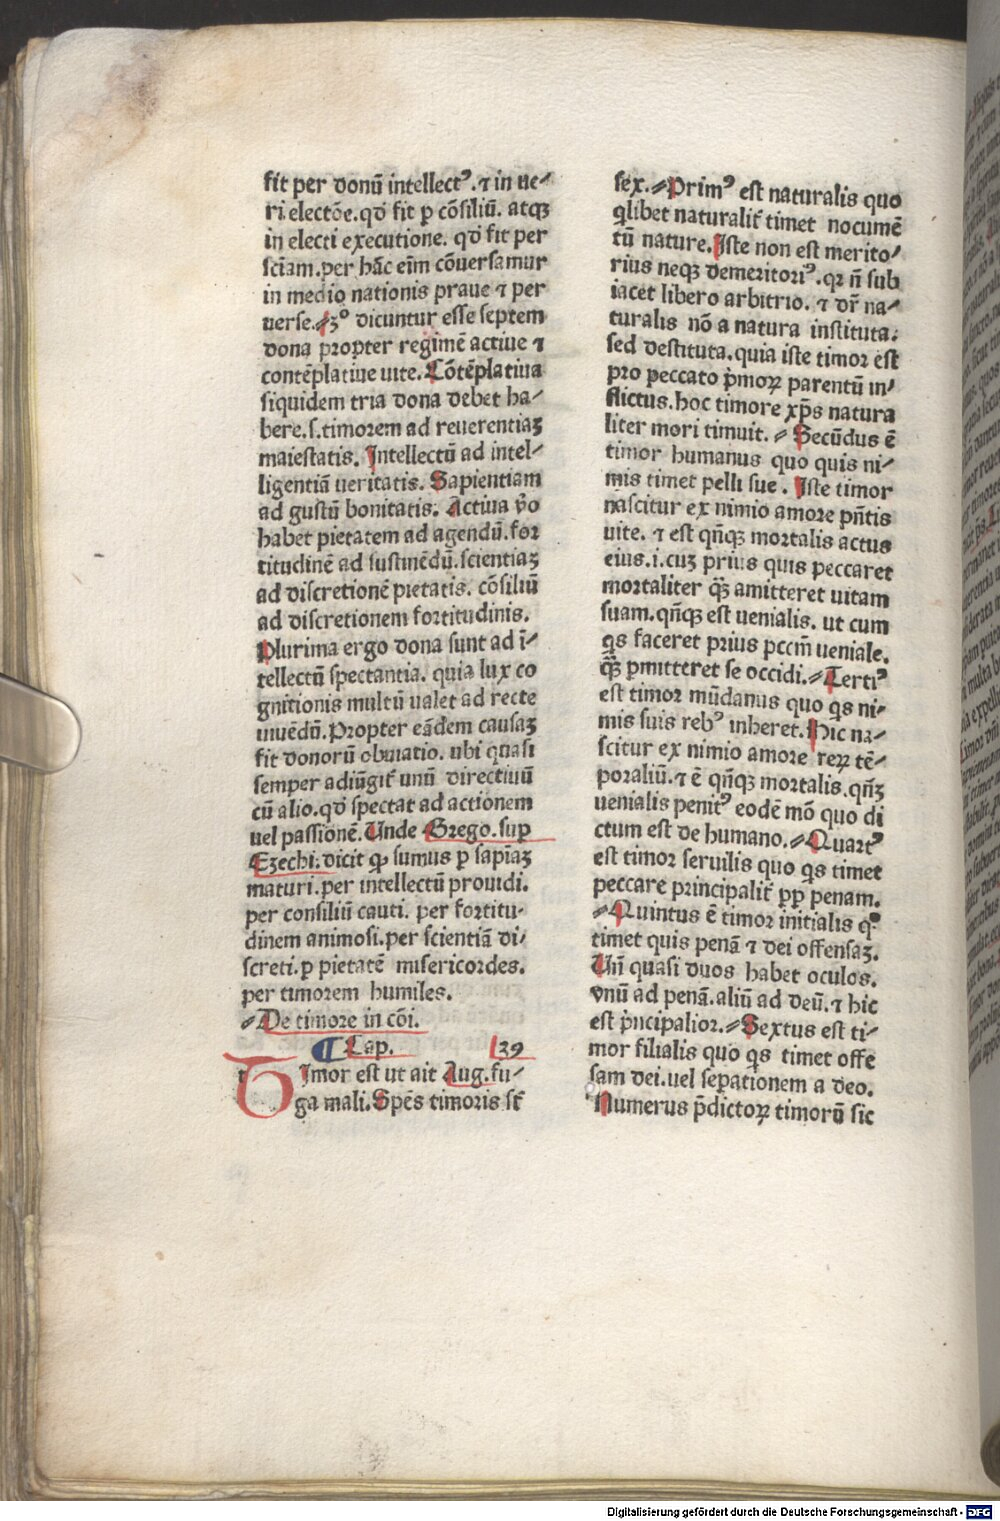 fit per donū intellectꝰ. ⁊ in ue⸗
ri electōe. qď fit ꝑ cōsiliū. atqꝫ
in electi executione. qď fit per
sciam. per hāc eīm cōuersamur
in medio nationis praue ⁊ per
uerse. 3° dicuntur esse septem
dona propter regimē actiue ⁊
contēplatiue uite. Cōtēplatiua
siquidem tria dona debet ha⸗
bere. s. timorem ad reuerentiaꝫ
maiestatis. Intellectū ad intel⸗
ligentiā ueritatis. Sapientiam
ad gustū bonitatis. Actiua v̄o
habet pietatem ad agendū. for
titudinē ad sustinēdū. scientiaꝫ
ad discretionē pietatis. cōsiliū
ad discretionem fortitudinis.
Plurima ergo dona sunt ad ī⸗
tellectū spectantia. quia lux co
gnitionis multū ualet ad recte
uiuēdū. Propter eādem causaꝫ
fit donorū obuiatio. ubi quasi
semper adiūgit᷑ unū directiuū
cū alio. qď spectat ad actionem
uel passionē. Unde Grego. suꝑ
Ezechi. dicit ꝙ sumus ꝑ sapiāꝫ
maturi. per intellectū prouidi.
per consiliū cauti. per fortitu⸗
dinem animosi. per scientiā di⸗
screti. ꝑ pietatē misericordes.
per timorem humiles.
⸗De timore in cōi.
¶ Cap. 39
t Imor est ut ait Aug. fu⸗
ga mali. Spēs timoris st̄
sex. ⸗Primꝰ est naturalis quo
qlibet naturalit᷑ timet nocumē
tū nature. Iste non est merito⸗
rius neqꝫ demeritoriꝰ. qꝛ n̄ sub
iacet libero arbitrio. ⁊ dr̄ na⸗
turalis nō a natura instituta.
sed destituta. quia iste timor est
pro peccato pͥmoꝝ parentū in⸗
flictus. hoc timore xp̄s natura
liter mori timuit. ⸗ Secūdus ē
timor humanus quo quis ni⸗
mis timet pelli sue. Iste timor
nascitur ex nimio amore pn̄tis
uite. ⁊ est qn̄qꝫ mortalis actus
eius. i. cuꝫ prius quis peccaret
mortaliter qꝫ̄ amitteret uitam
suam. qn̄qꝫ est uenialis. ut cum
qͥs faceret prius pccm̄ ueniale.
qꝫ̄ ꝑmitteret se occidi. ⸗Tertiꝰ
est timor mūdanus quo qͥs ni⸗
mis suis rebꝰ inheret. Hic na⸗
scitur ex nimio amore reꝝ tē⸗
poraliū. ⁊ ē qn̄qꝫ mortalis. qn̄ꝫ
uenialis penitꝰ eodē mō quo di
ctum est de humano. ⸗Quartꝰ
est timor seruilis quo qͥs timet
peccare principalit᷑ ꝓꝑ penam.
⸗Quintus ē timor initialis qͦ
timet quis penā ⁊ dei offensaꝫ.
Un̄ quasi duos habet oculos.
vnū ad penā. aliū ad deū. ⁊ hic
est pͥncipalior. ⸗Sextus est ti⸗
mor filialis quo qͥs timet offe
sam dei. uel seꝑationem a deo.
Numerus p̄dictoꝝ timorū sic
Digitalisierung gefördert durch die Deutsche Forschungsgemeinschaft - DFG